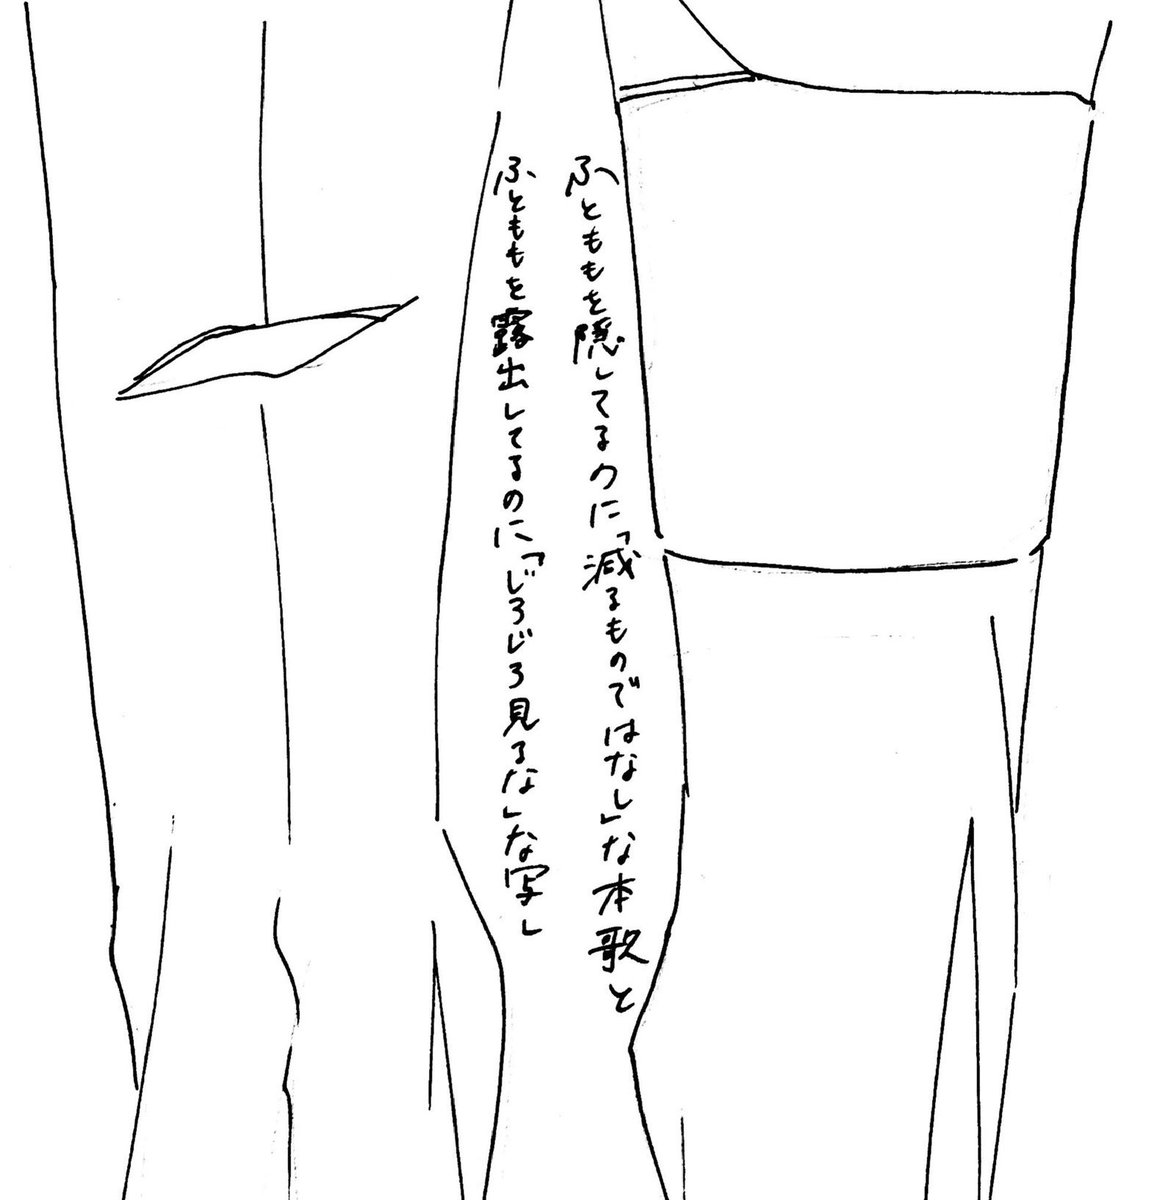 ふとももを隠してるのに「減るものではなし」な本歌と
ふとももを露出してるのに「じろじろ見るな」な写し